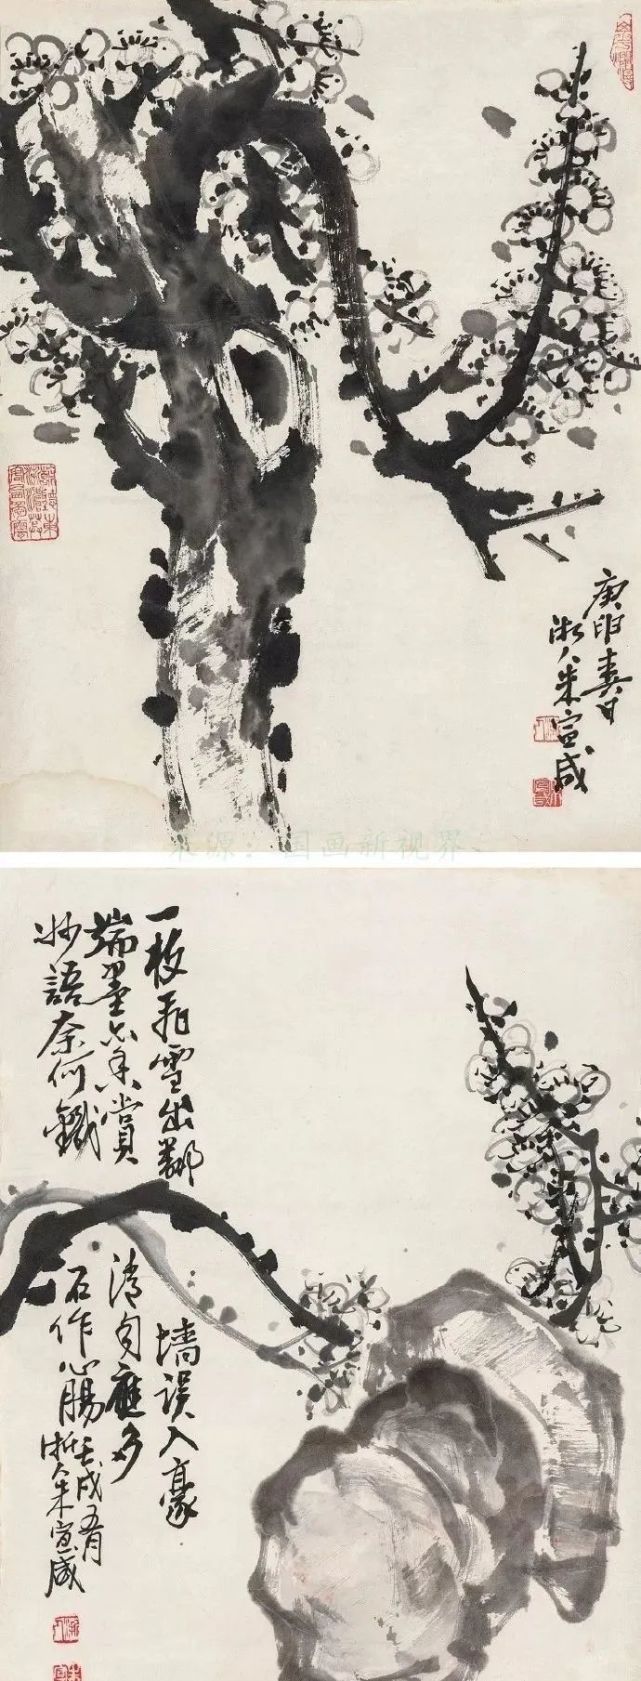 庚申春日
浙人朱宣咸
来源：国画新视界
一枝和雪出鄰
墙误入豪
端墨亦香賞
清句應多
妙語奈何鐵
石作心腸
壬戌五月
浙人朱宣咸